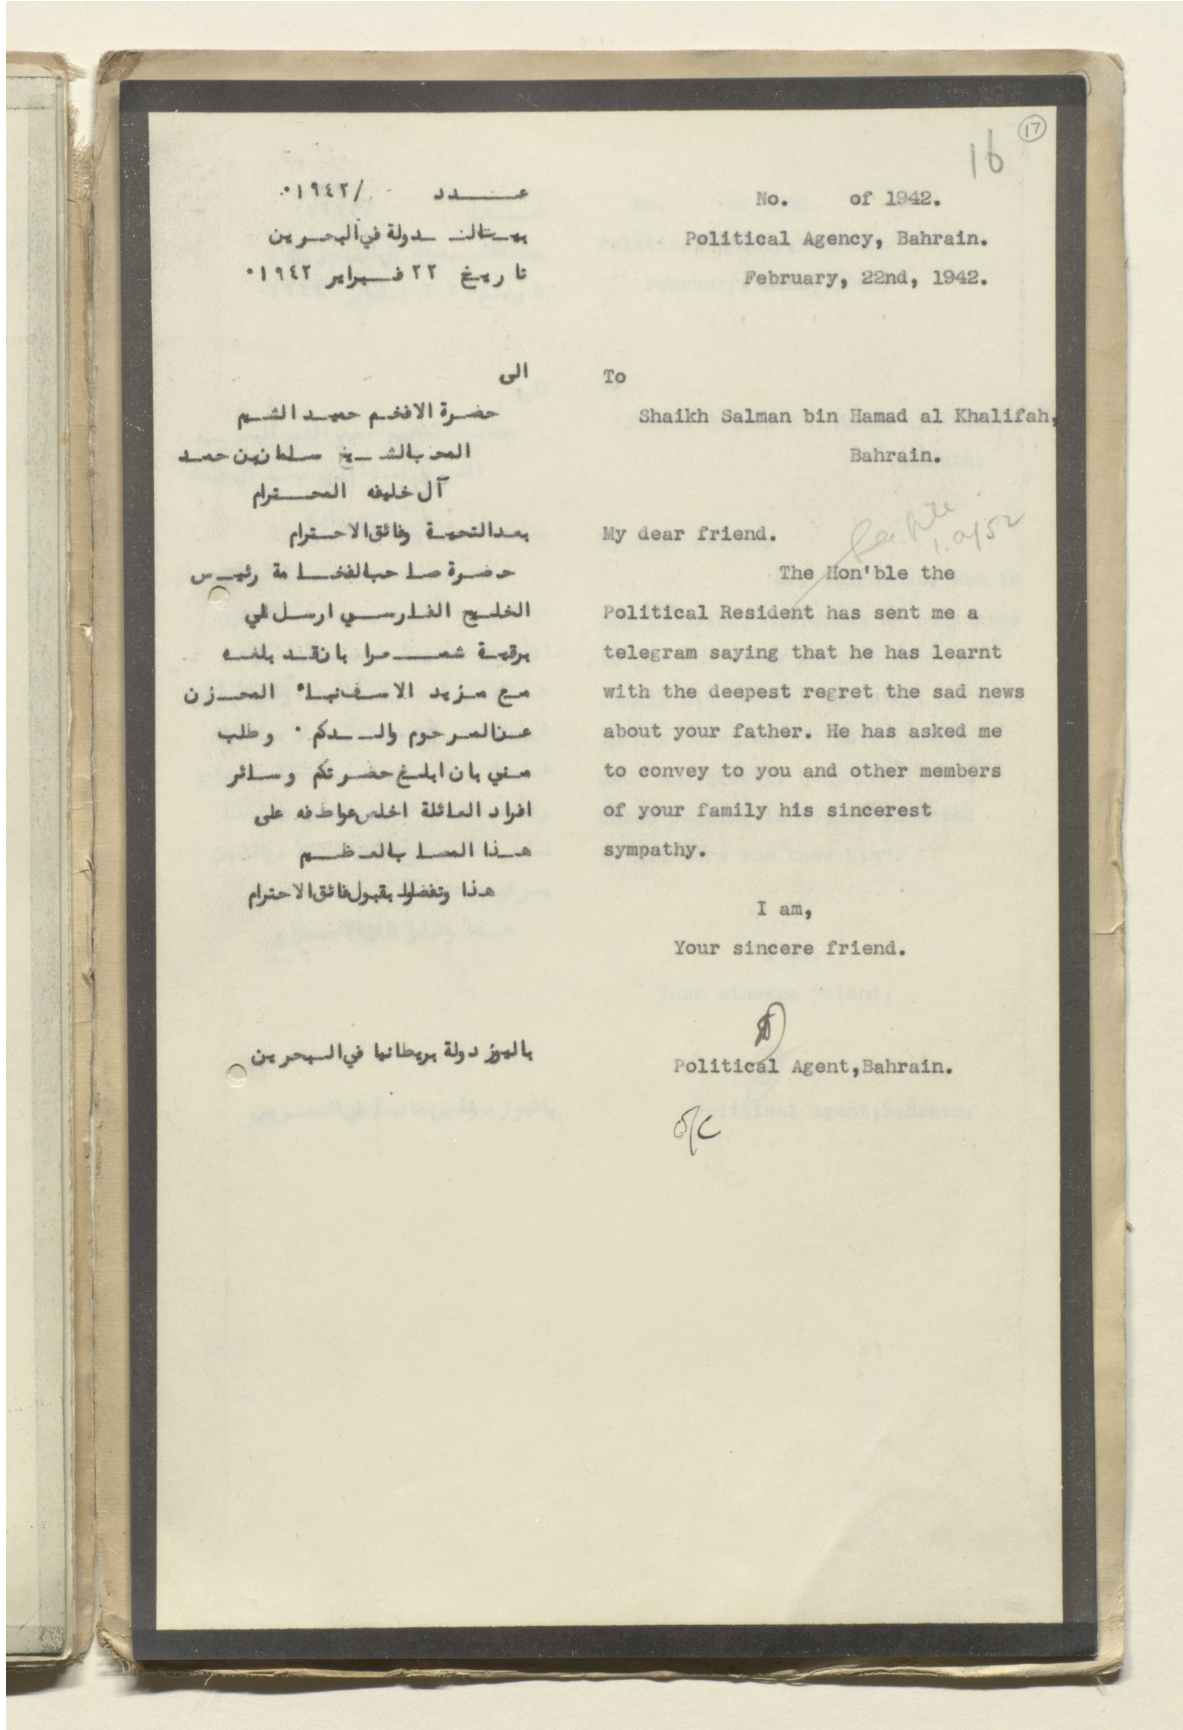 17
16
No. of 1942.
Political Agency, Bahrain.
February, 22nd, 1942.
To
Shaikh Salman bin Hamad al Khalifah,
Bahrain.
My dear friend.
The Hon'ble the
Political Resident has sent me a
telegram saying that he has learnt
with the deepest regret the sad news
about your father. He has asked me
to convey to you and other members
of your family his sincerest
sympathy.
I am,
Your sincere friend.
Political Agent,Bahrain.
عدد /١٩٤٢٠
دولة في البحرين
تاريخ ٢٢ فبراير ١٩٤٢٠
الى
حضرة الافخم حميد الشيم
المحب الشيخ سلمان بن حمد
آل خليفه المحترام
بعد التحية وفائق الاحترام
حضرة صاحب الفخامة رئيس
الخليج الفارسي ارسل الي
برقية بانقد بلغه
مع مزيد الاسف نباء المحزن
عن المرحوم والدكم ٠ وطلب
مني بان ابلغ حضرتكم وسائر
افراد العائلة اخلص عواطفه على
هذا المصاب العظيم
هذا وتفضلوا بقبول فائق الاحترام
باليوز دولة بريطانيا في البحرين